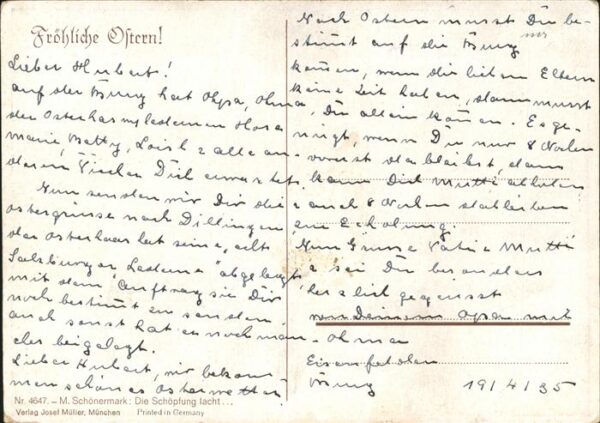 Fröhliche Ostern!
Lieber Hubert!
auf der Burg hat Opa, Oma
der Osterhas
Betty, alle an-
deren Dich erwartet.
Nun senden wir Dir die
Ostergrüsse nach Dillingen
der Osterhas hat seine echt
Salzburger abgelegt
mit dem Auftrag sie Dir
noch bestimmt zu senden.
auch sonst hat er noch man-
ches beigelegt.
Lieber Hubert, wir bekom-
men schönes Osterwetter
Nach Ostern musst Du be-
stimmt auf die Burg
kommen, wenn die lieben Eltern
keine Zeit haben, dann musst
Du allein kommen. Es ge-
nügt, wenn Du nur 8 Wochen
da bleibst, dann
kann Dich Mutti abholen
auch 8 Wochen
Erholung.
Nun Mutti
sei Du besonders
herzlich gegrüsst
von Deinem Opa mit
Ohma
Burg 19/4/35
Nr. 4647. – M. Schönermark: Die Schöpfung lacht ...
Verlag Josef Müller, München Printed in Germany